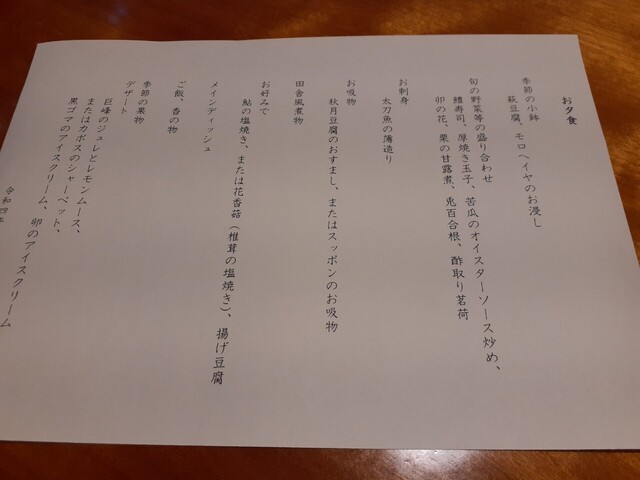 お夕食
季節の小鉢
萩豆腐、モロヘイヤのお浸し
旬の野菜等の盛り合わせ
鱧寿司、厚焼き玉子、苦瓜のオイスターソース炒め、
卯の花、栗の甘露煮、鬼百合根、酢取り茗荷
お刺身
太刀魚の薄造り
お吸物
秋月豆腐のおすまし、またはスッポンのお吸物
田舎風煮物
お好みで
鮎の塩焼き、または花香菇（椎茸の塩焼き）、揚げ豆腐
メインディッシュ
ご飯、香の物
季節の果物
デザート
巨峰のジュレとレモンムース、
またはカボスのシャーベット、
黒ゴマのアイスクリーム、卵のアイスクリーム
令和四年